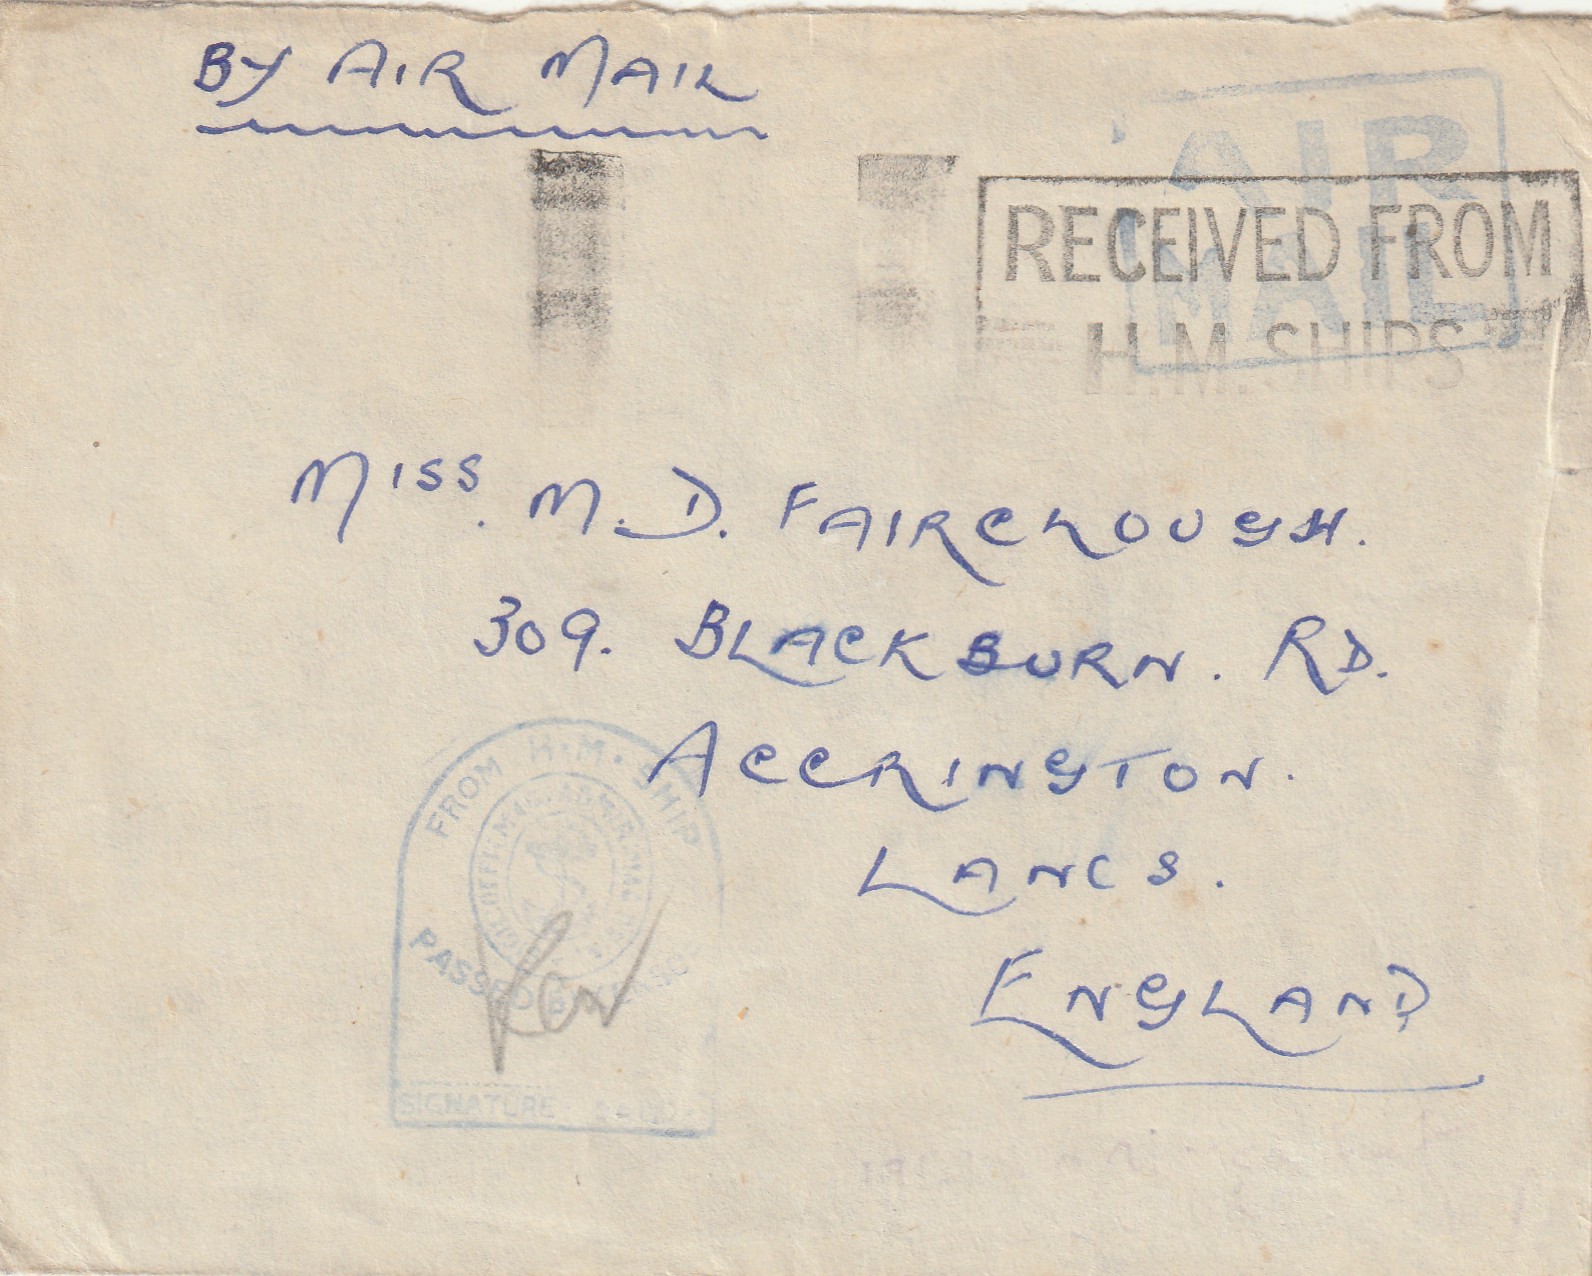 BY AIR MAIL
AIR
MAIL
RECEIVED FROM
H.M. SHIPS
MISS. M. D. FAIRCLOUGH.
309. BLACKBURN. RD.
ACCRINGTON.
LANCS.
ENGLAND
FROM H.M. SHIP
PASSED BY CENSOR
SIGNATURE